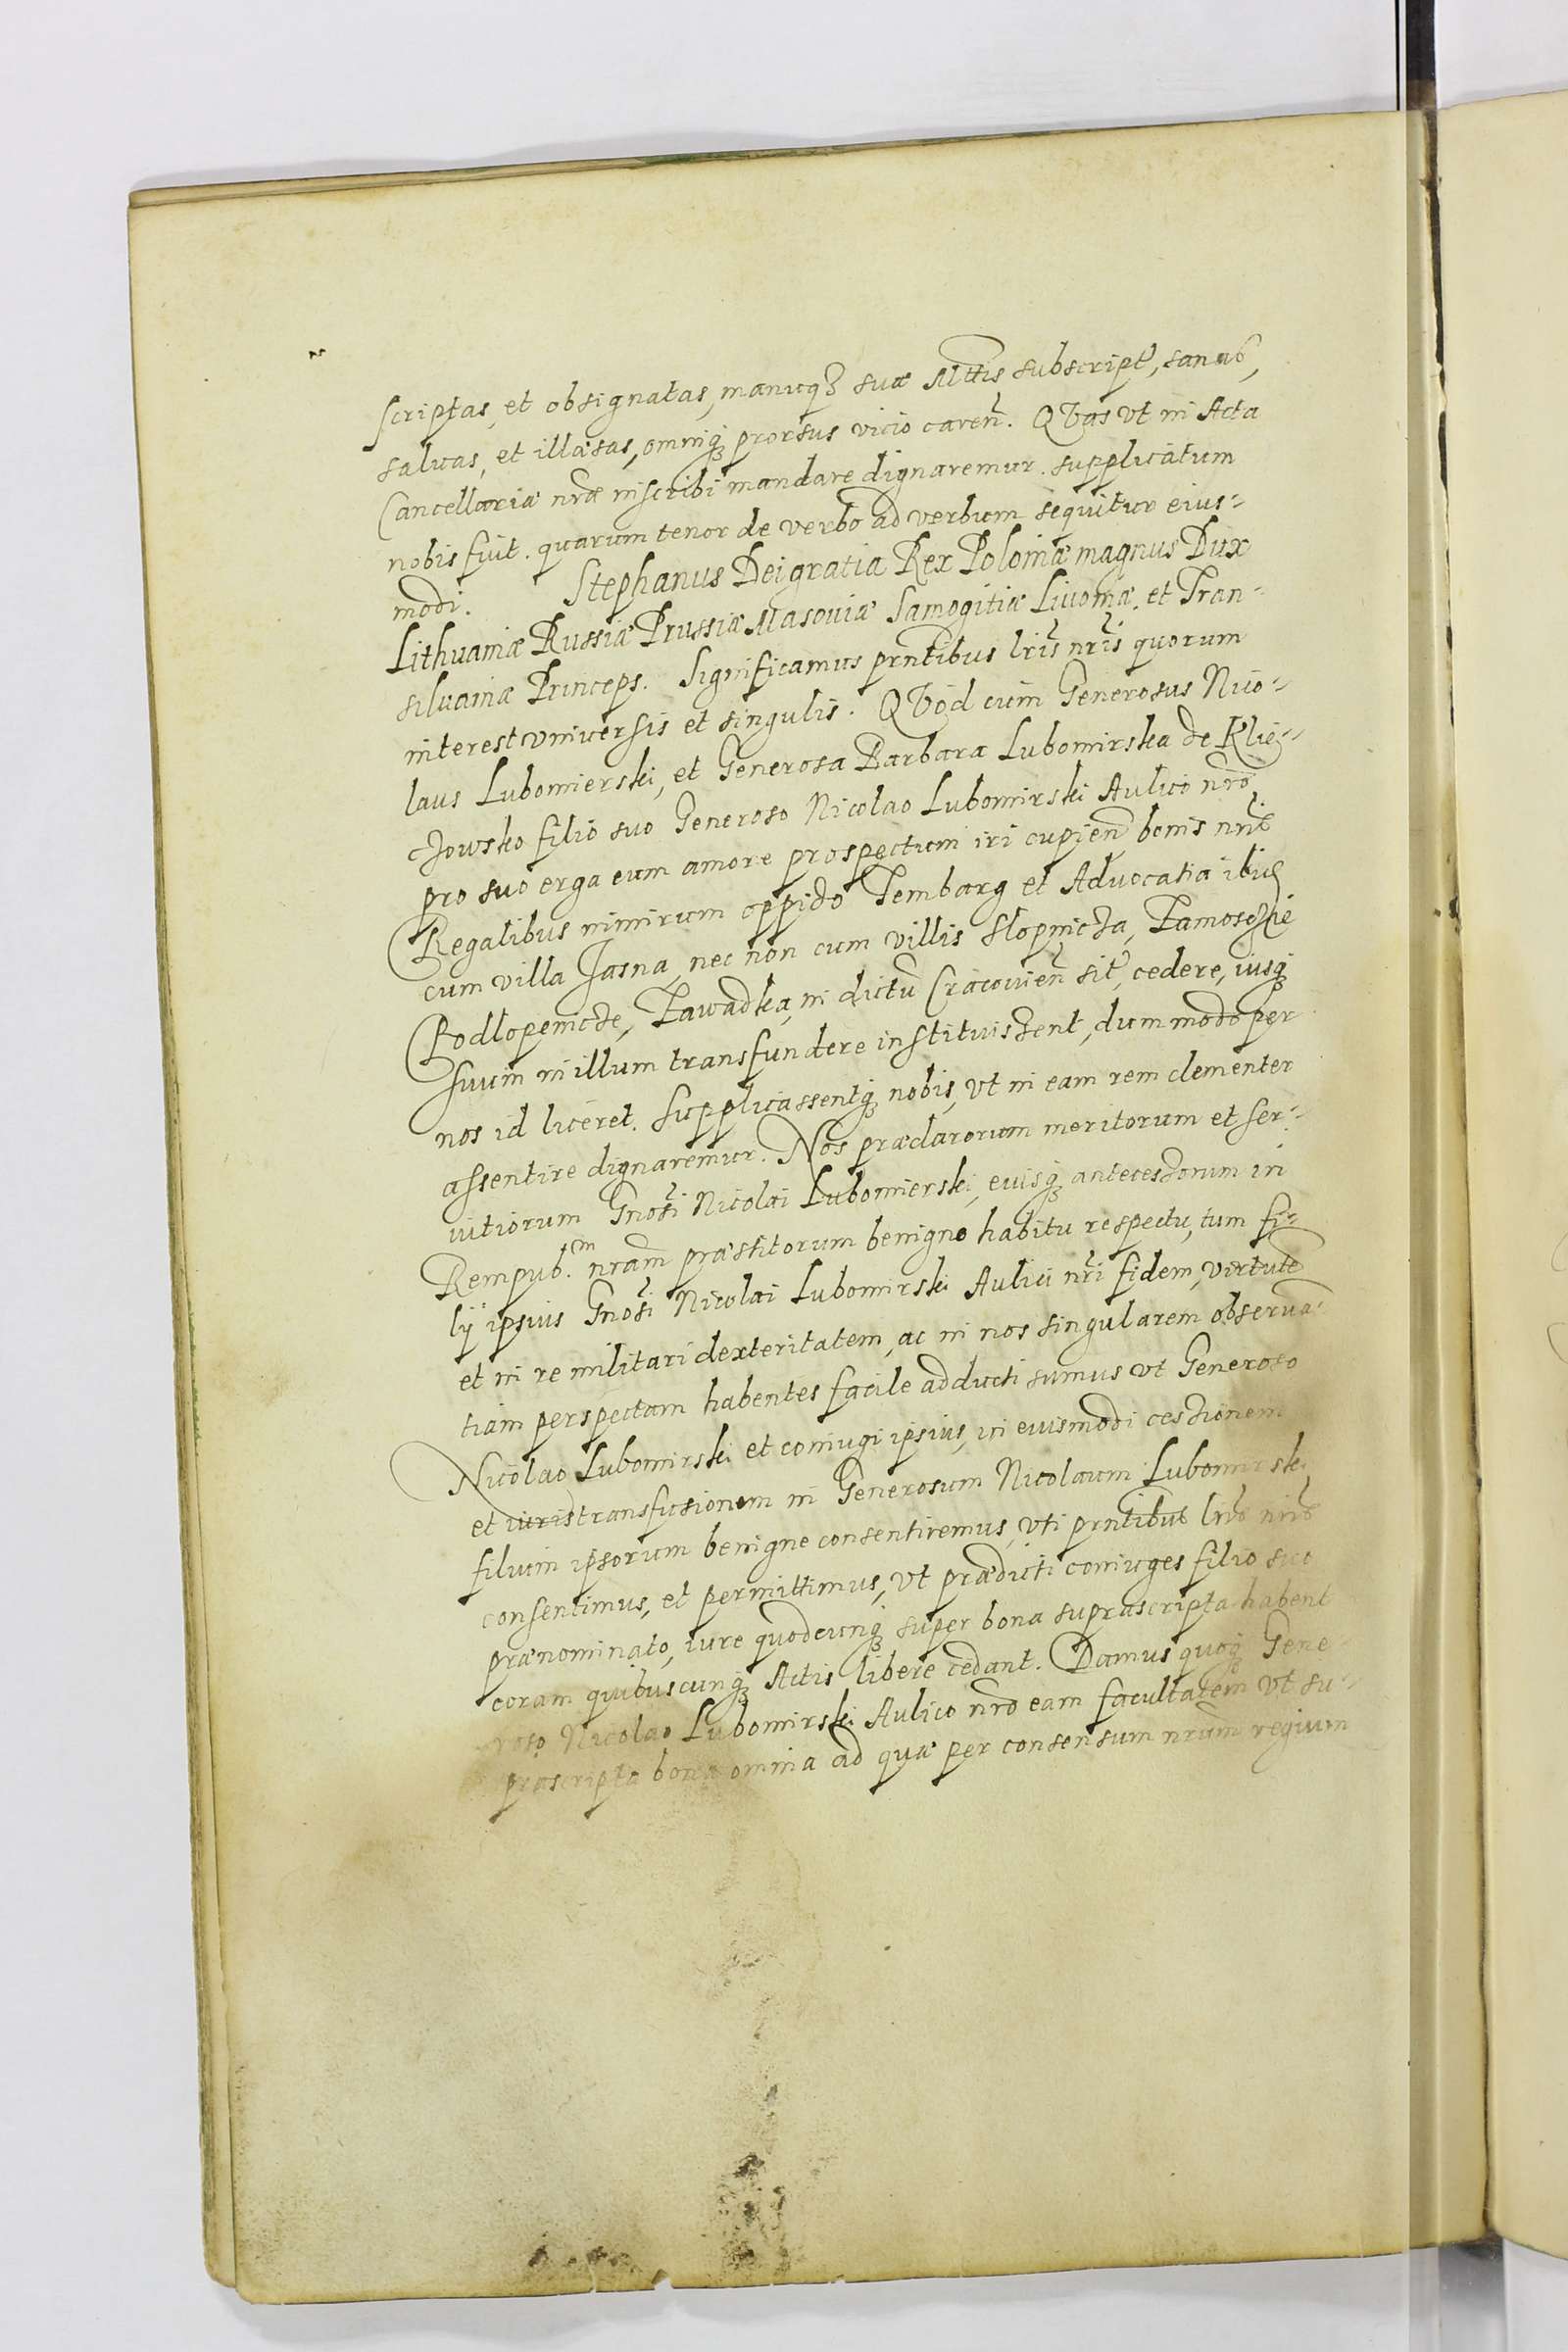 scriptas, et obsignatas, manuq3 suæ Mttis subscript, sanas,
saluas, et illæsas, omniq3 prorsus vicio caren. QVas vt in Acta
Cancellariæ nræ inscribi mandare dignaremur. supplicatum
nobis fuit. quarum tenor de verbo ad verbum sequitur eius=
modi. Stephanus Dei gratia Rex Poloniæ magnus Dux
Lithuaniæ Russiæ Prussiæ Masouiæ Samogitiæ Liuoniæ. et Tran=
siluaniæ Princeps. Significamus prntibus lris nris quorum
interest vniuersis et singulis. QVod cum Generosus Nico=
laus Lubomierski, et Generosa Barbara Lubomirska de
filio suo Generoso Nicolao Lubomirski Aulico nro,
pro suo erga eum amore prospectum iri cupien bonis nris
Regalibus nimirum oppido Tembarg et Aduocatia ibid
cum villa Jasna, nec non cum villis Slopnicza, Zamosczie
Podlopenicze, Zawadka, in dictu Cracouien sit, cedere, iusq3
suum in illum transfundere instituissent, dummodo per
nos id liceret. Supplicassentq3 nobis, vt in eam rem clementer
assentire dignaremur. Nos præclarorum meritorum et ser=
uitiorum Gnosi Nicolai Lubomierski, euisq3 antecessorum in
Rempub.m nram præstitorum benigno habitu respectu, tum fi=
lÿ ipsius Gnosi Nicolai Lubomirski Aulici nri fidem, virtute
et in re militari dexteritatem, ac in nos singularem obserua=
tiam perspectam habentes facile adducti sumus vt Generoso
Nicolao Lubomirski et coniugi ipsius, in euismodi cessionem
et iuris transfusionem in Generosum Nicolaum Lubomirski
filium ipsorum benigne consentiremus, vti prntibus lris nris
consentimus, et permittimus, vt prædicti coniuges filio suo
prænominato, iure quodcunq3 super bona suprascripta habent
coram quibuscunq3 Actis libere cedant. Damus quoq3 Gene=
roso Nicolao Lubomirski Aulico nro eam facultatem vt su=
prascripta bona omnia ad quæ per consensum nrum regium